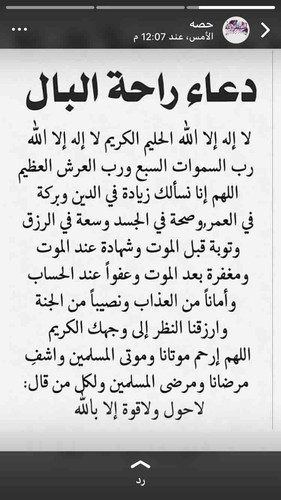 حصه
الأمس، عند 12:07 م
دعاء راحة البال
لا إله إلا الله الحليم الكريم لا إله إلا الله
رب السموات السبع ورب العرش العظيم
اللهم إنا نسألك زيادة في الدين وبركة
في العمر,وصحة في الجسد وسعة في الرزق
وتوبة قبل الموت وشهادة عند الموت
ومغفرة بعد الموت وعفواً عند الحساب
وأماناً من العذاب ونصيباً من الجنة
وارزقنا النظر إلى وجهك الكريم
اللهم إرحم موتانا وموتى المسلمين واشفِ
مرضانا ومرضى المسلمين ولكل من قال:
لاحول ولاقوة إلا بالله
رد